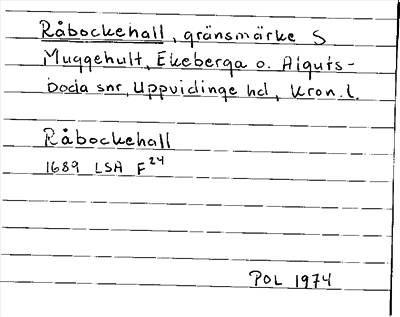 Råbockehall, gränsmärke S
Muggehult, Ekeberga o. Alguts-
boda snr, Uppvidinge hd, Kron. l.
Råbockehall
1689 LSA F24
POL 1974